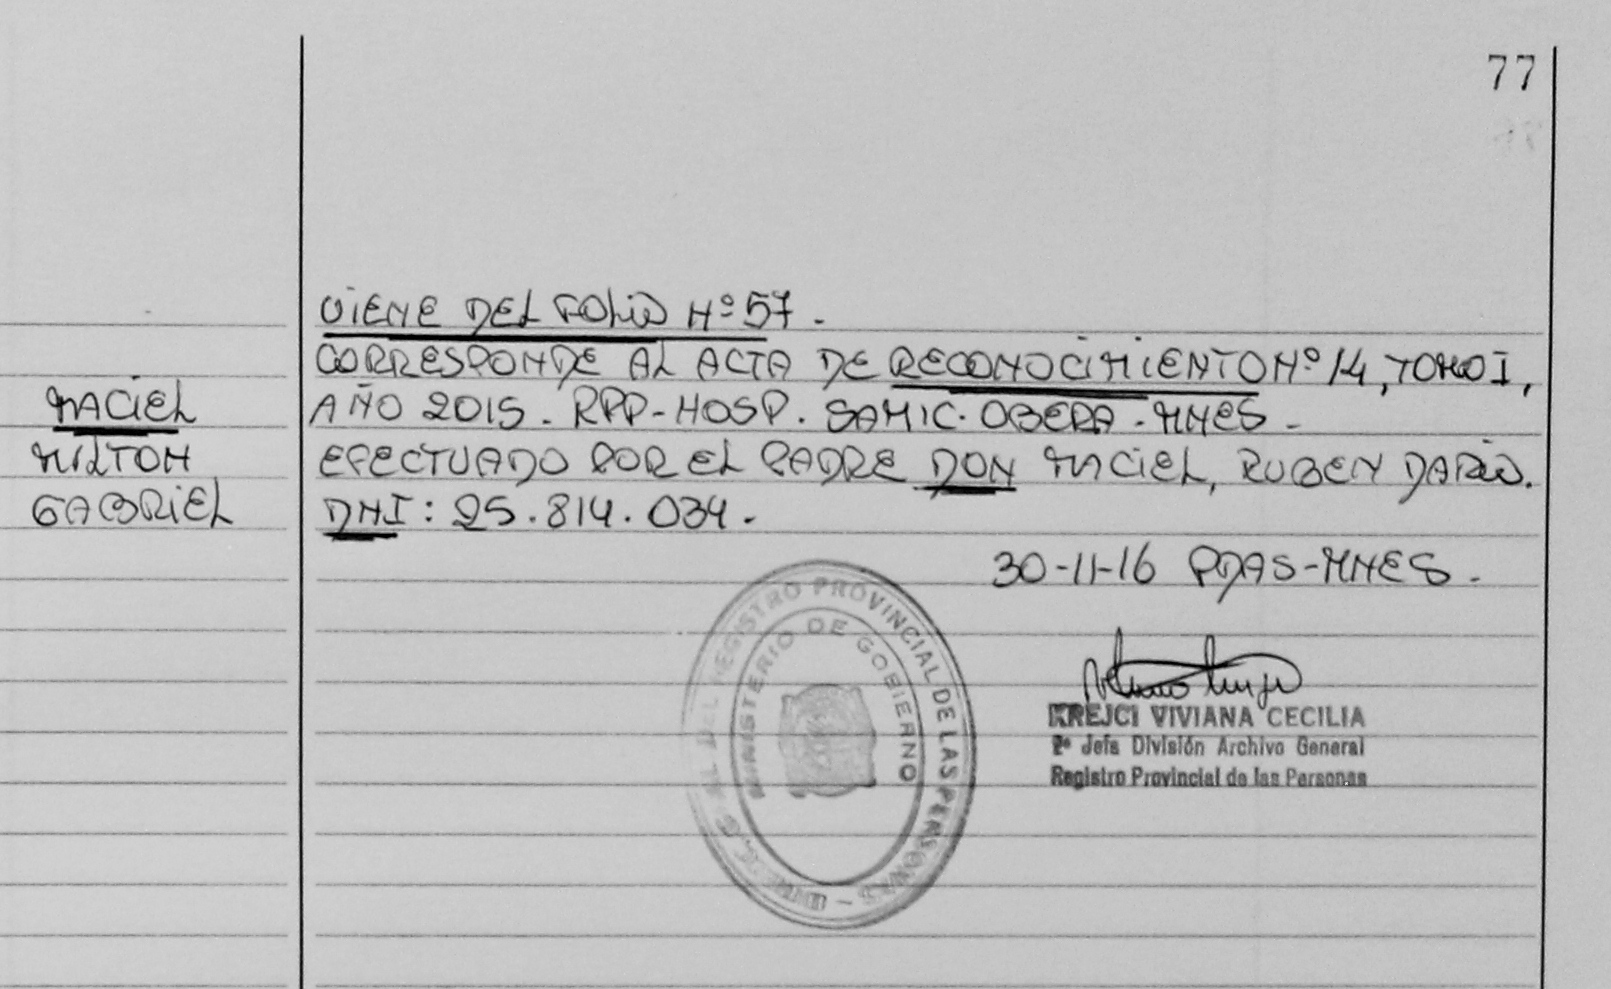 77
VIENE DEL FOLIO Nº 57.
CORRESPONDE AL ACTA DE RECONOCIMIENTO Nº 14, TOMO I,
MACIEL
AÑO 2015. RPP-HOSP. SAMIC. OBERA - MNES -
MILTON
EFECTUADO POR EL PADRE DON MACIEL, RUBEN DARIO.
GABRIEL
DNI: 25.814.034.
30-11-16 PDAS-MNES.
REGISTRO PROVINCIAL DE LAS PERSONAS
MINISTERIO DE GOBIERNO
KREJCI VIVIANA CECILIA
2º Jefa División Archivo General
Registro Provincial de las Personas